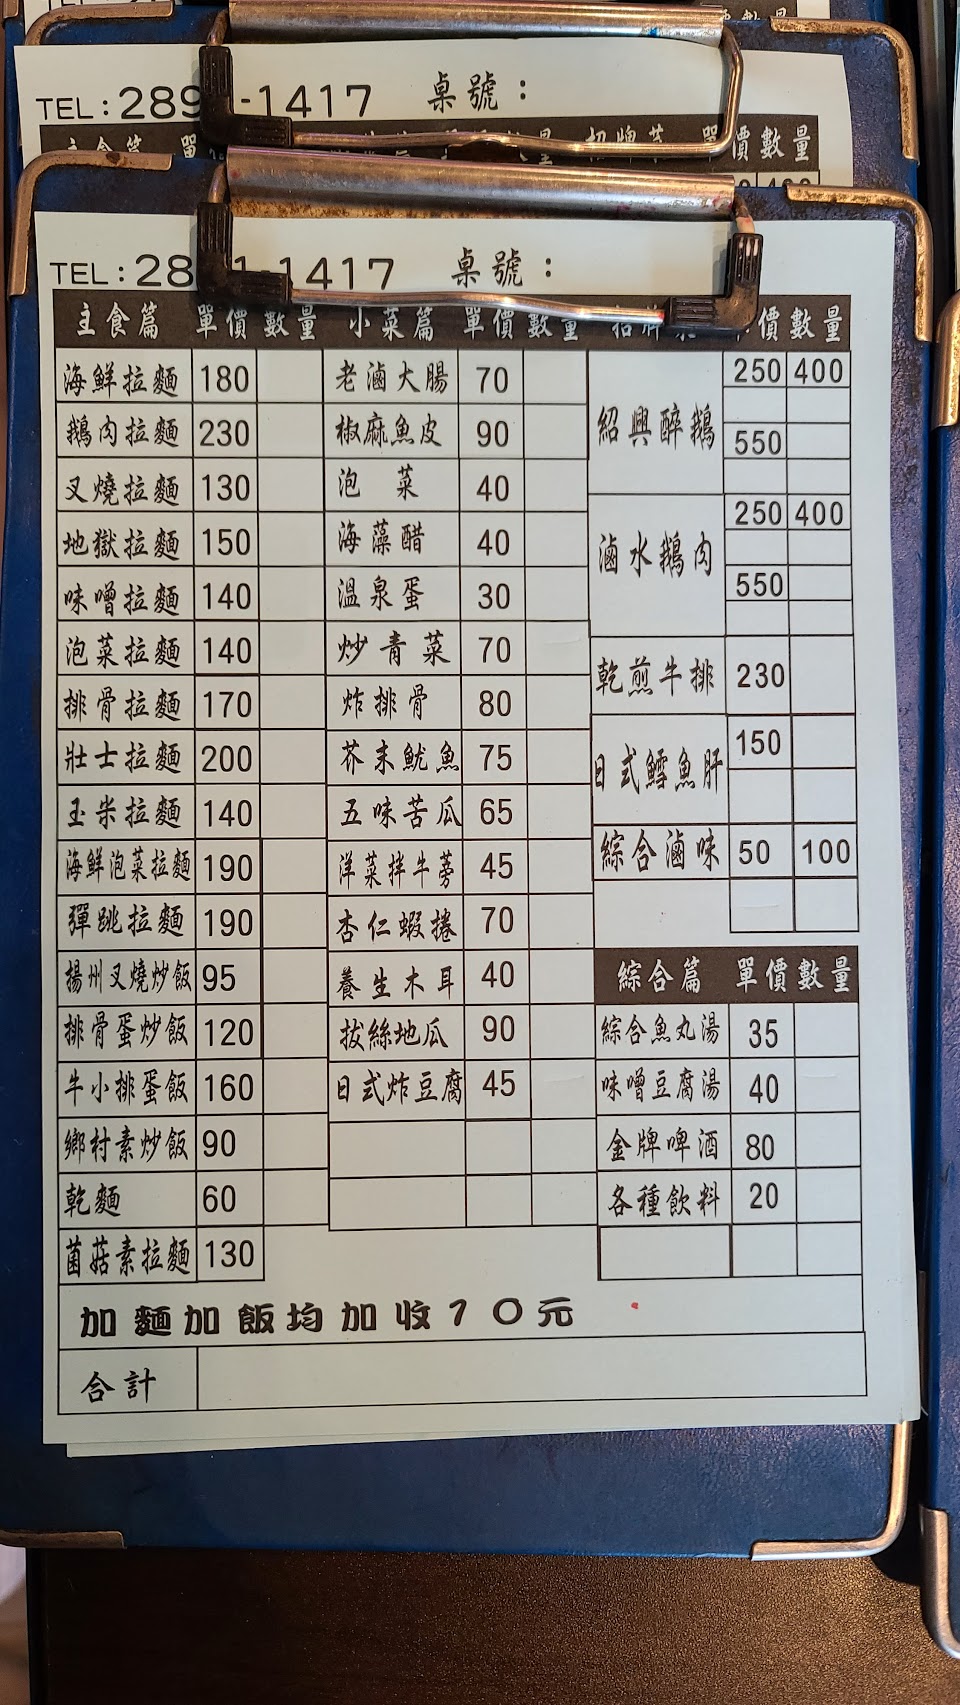 TEL:289 -1417 桌號:
主食篇 單價數量
TEL:28 1-1417 桌號:
主食篇 單價 數量 小菜篇 單價 數量 招牌菜 單價 數量
海鮮拉麵 180 老滷大腸 70 紹興醉鵝 250 400
鵝肉拉麵 230 椒麻魚皮 90 550
叉燒拉麵 130 泡菜 40 滷水鵝肉 250 400
地獄拉麵 150 海藻醋 40 550
味噌拉麵 140 溫泉蛋 30
泡菜拉麵 140 炒青菜 70 乾煎牛排 230
排骨拉麵 170 炸排骨 80
壯士拉麵 200 芥末魷魚 75 日式鱈魚肝 150
玉米拉麵 140 五味苦瓜 65
海鮮泡菜拉麵 190 洋菜拌牛蒡 45 綜合滷味 50 100
彈跳拉麵 190 杏仁蝦捲 70
揚州叉燒炒飯 95 養生木耳 40 綜合篇 單價數量
排骨蛋炒飯 120 拔絲地瓜 90 綜合魚丸湯 35
牛小排蛋飯 160 日式炸豆腐 45 味噌豆腐湯 40
鄉村素炒飯 90 金牌啤酒 80
乾麵 60 各種飲料 20
菌菇素拉麵 130
加麵加飯均加收10元
合計